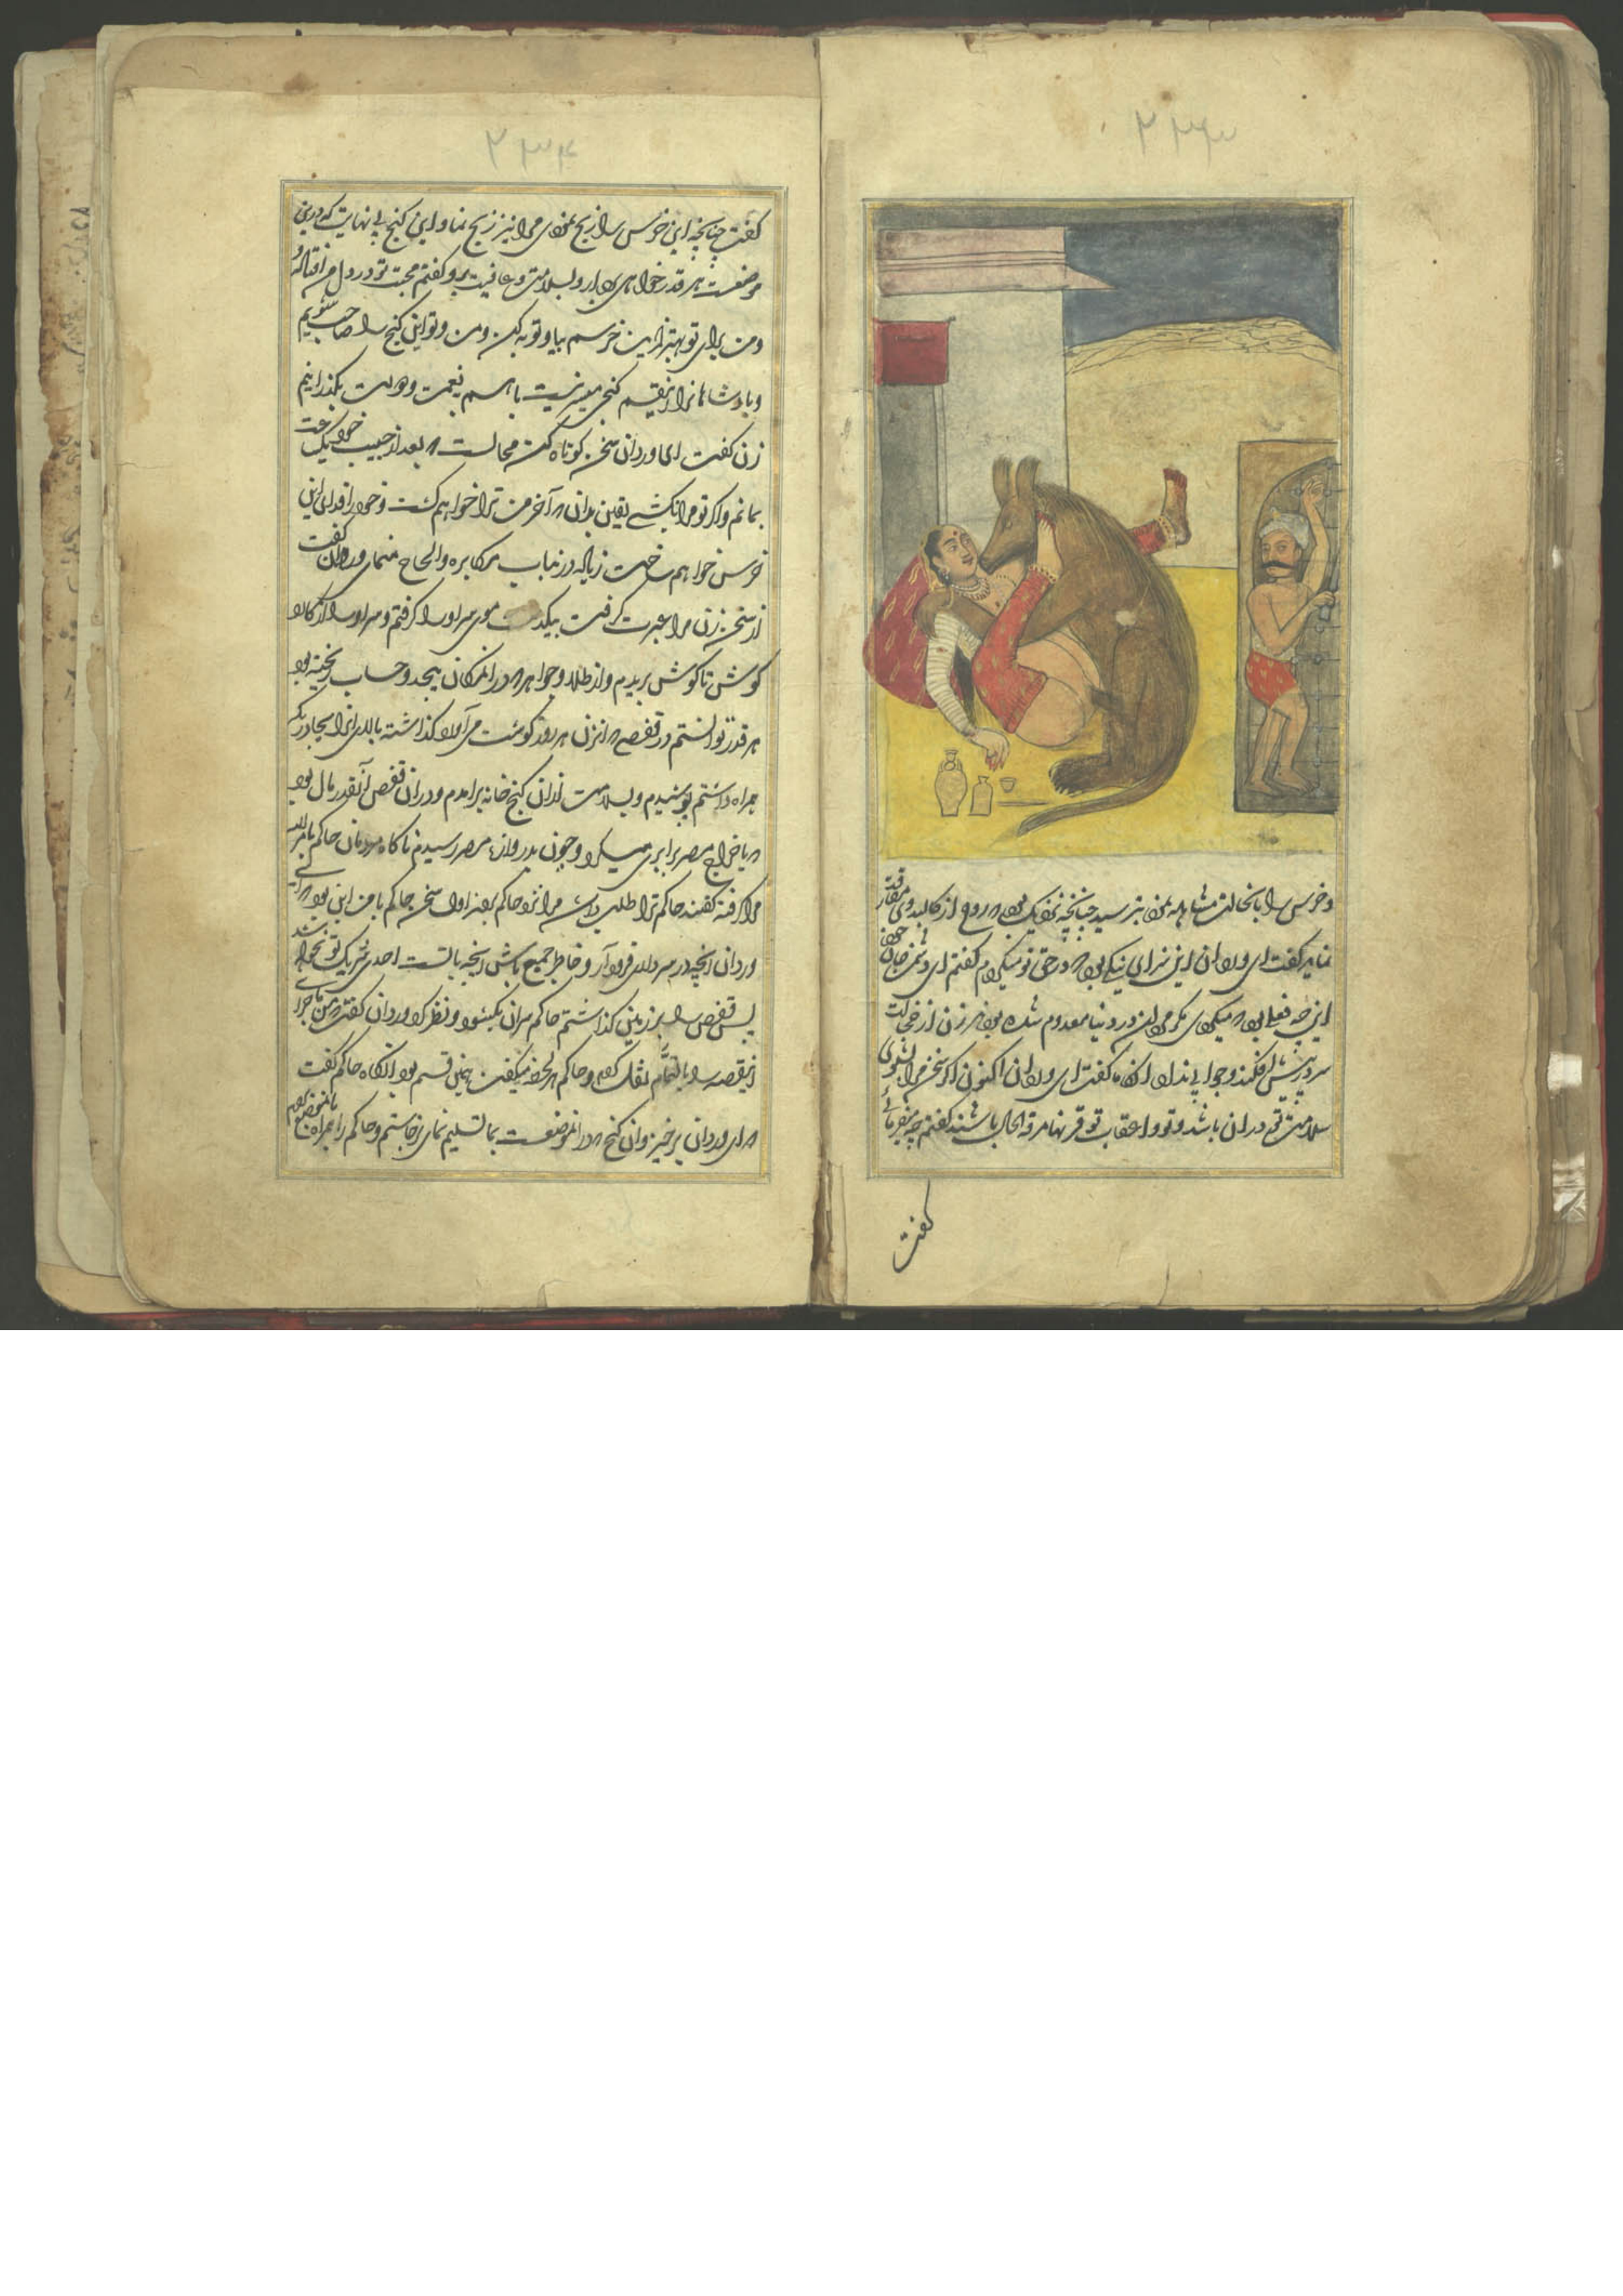 ۲۳۳
و خرس را بانحالت مشاهده نمود بترسید چنانچه نزدیک بود که روح از کالبد وی مفارقت
نماید گفت ای وردان این سزای نیکی بود که در حق تو میکردم گفتم ای دشمن جان خود
این چه فعلی بود که میکردی مگر مردان در دنیا معدوم شده بودند زن از خجالت
سر در پیش افکند و جوابی نداد انگاه گفت ای وردان اکنون اگر سخن مرا بشنوی
سلامتی تو در ان باشد و تو و اعقاب تو قرنها مرفه الحال باشند گفتم چه میفرمائی
گفت
۲۳۴
گفت چنانچه این خرس را ذبح نمودی مرا نیز ذبح نما و این گنج بی نهایت که درین
موضعست هر قدر خواهی بردار و بسلامتی و عافیت برو گفتم محبت تو در دل من افتاده
و من برای تو بهتر ازین خرسم بیا و توبه کن و من و تو این گنج را صاحب شویم
و پادشاهانرا ازینقسم گنجی میسر نیست با هم بنعمت و دولت بگذرانیم
زن گفت ای وردان سخن کوتاه کن محالست که بعد از حبیب خود یک ساعت
بمانم و اگر تو مرا نکشی یقین بدان که آخر من ترا خواهم کشت و خود را فدای این
خرس خواهم ساخت زیاده درینباب مکابره و الحاح منمای وردان گفت
از سخن زن مرا عبرت گرفت بیکدست موی سر او را گرفتم و سر او را از کارد
گوش تا گوش بریدم و از طلا و جواهر که در انمکان بیحد و حساب ریخته بود
هر قدر توانستم در قفصی که انزن هر روز گوشت می آورد گذاشته بالای انرا بچادری که
همراه داشتم پوشیدم و بسلامت ازان گنج خانه برامدم و دران قفص آنقدر مال بود
که با خراج مصر برابری میکرد و چون بدروازه مصر رسیدم ناگاه مردمان حاکم بامرالله
مرا گرفته گفتند حاکم ترا طلب داشته مرا نزد حاکم بردند اول سخن حاکم با من این بود که ای
وردان انچه در سر داری فرود آر و خاطر جمع باش انچه بالتست احدی شریک تو نخواهد شد
پس قفص را بر زمین گذاشتم حاکم سران بکشود و نظر کرد وردان گفت من ماجرای
اینقصه را بالتمام نقل کردم و حاکم هر لحظه میگفت همین قسم بود انگاه حاکم گفت
که ای وردان برخیز و ان گنج که در انموضعست بما تسلیم نمای برخاستم و حاکم را همراه بانموضع بردم